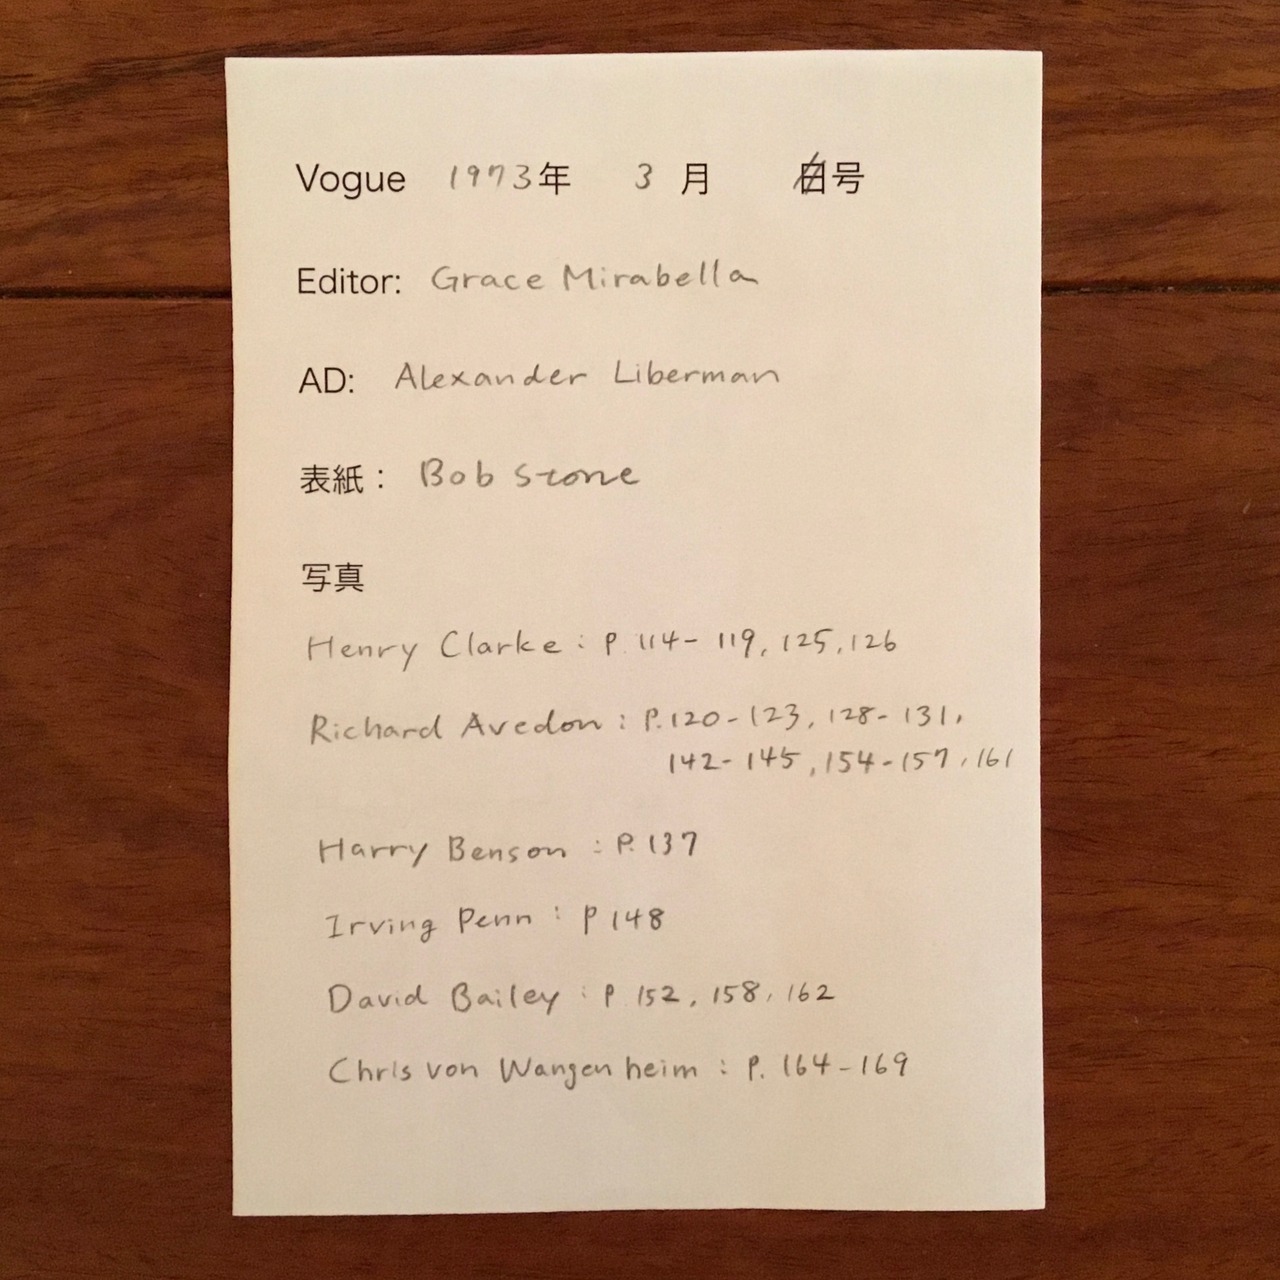 Vogue 1973年 3月 日号
Editor: Grace Mirabella
AD: Alexander Liberman
表紙： Bob Stone
写真
Henry Clarke : P. 114- 119, 125, 126
Richard Avedon : P. 120-123, 128-131,
142-145, 154-157, 161
Harry Benson : P. 137
Irving Penn : P 148
David Bailey : P. 152, 158, 162
Chris von Wangenheim : P. 164-169